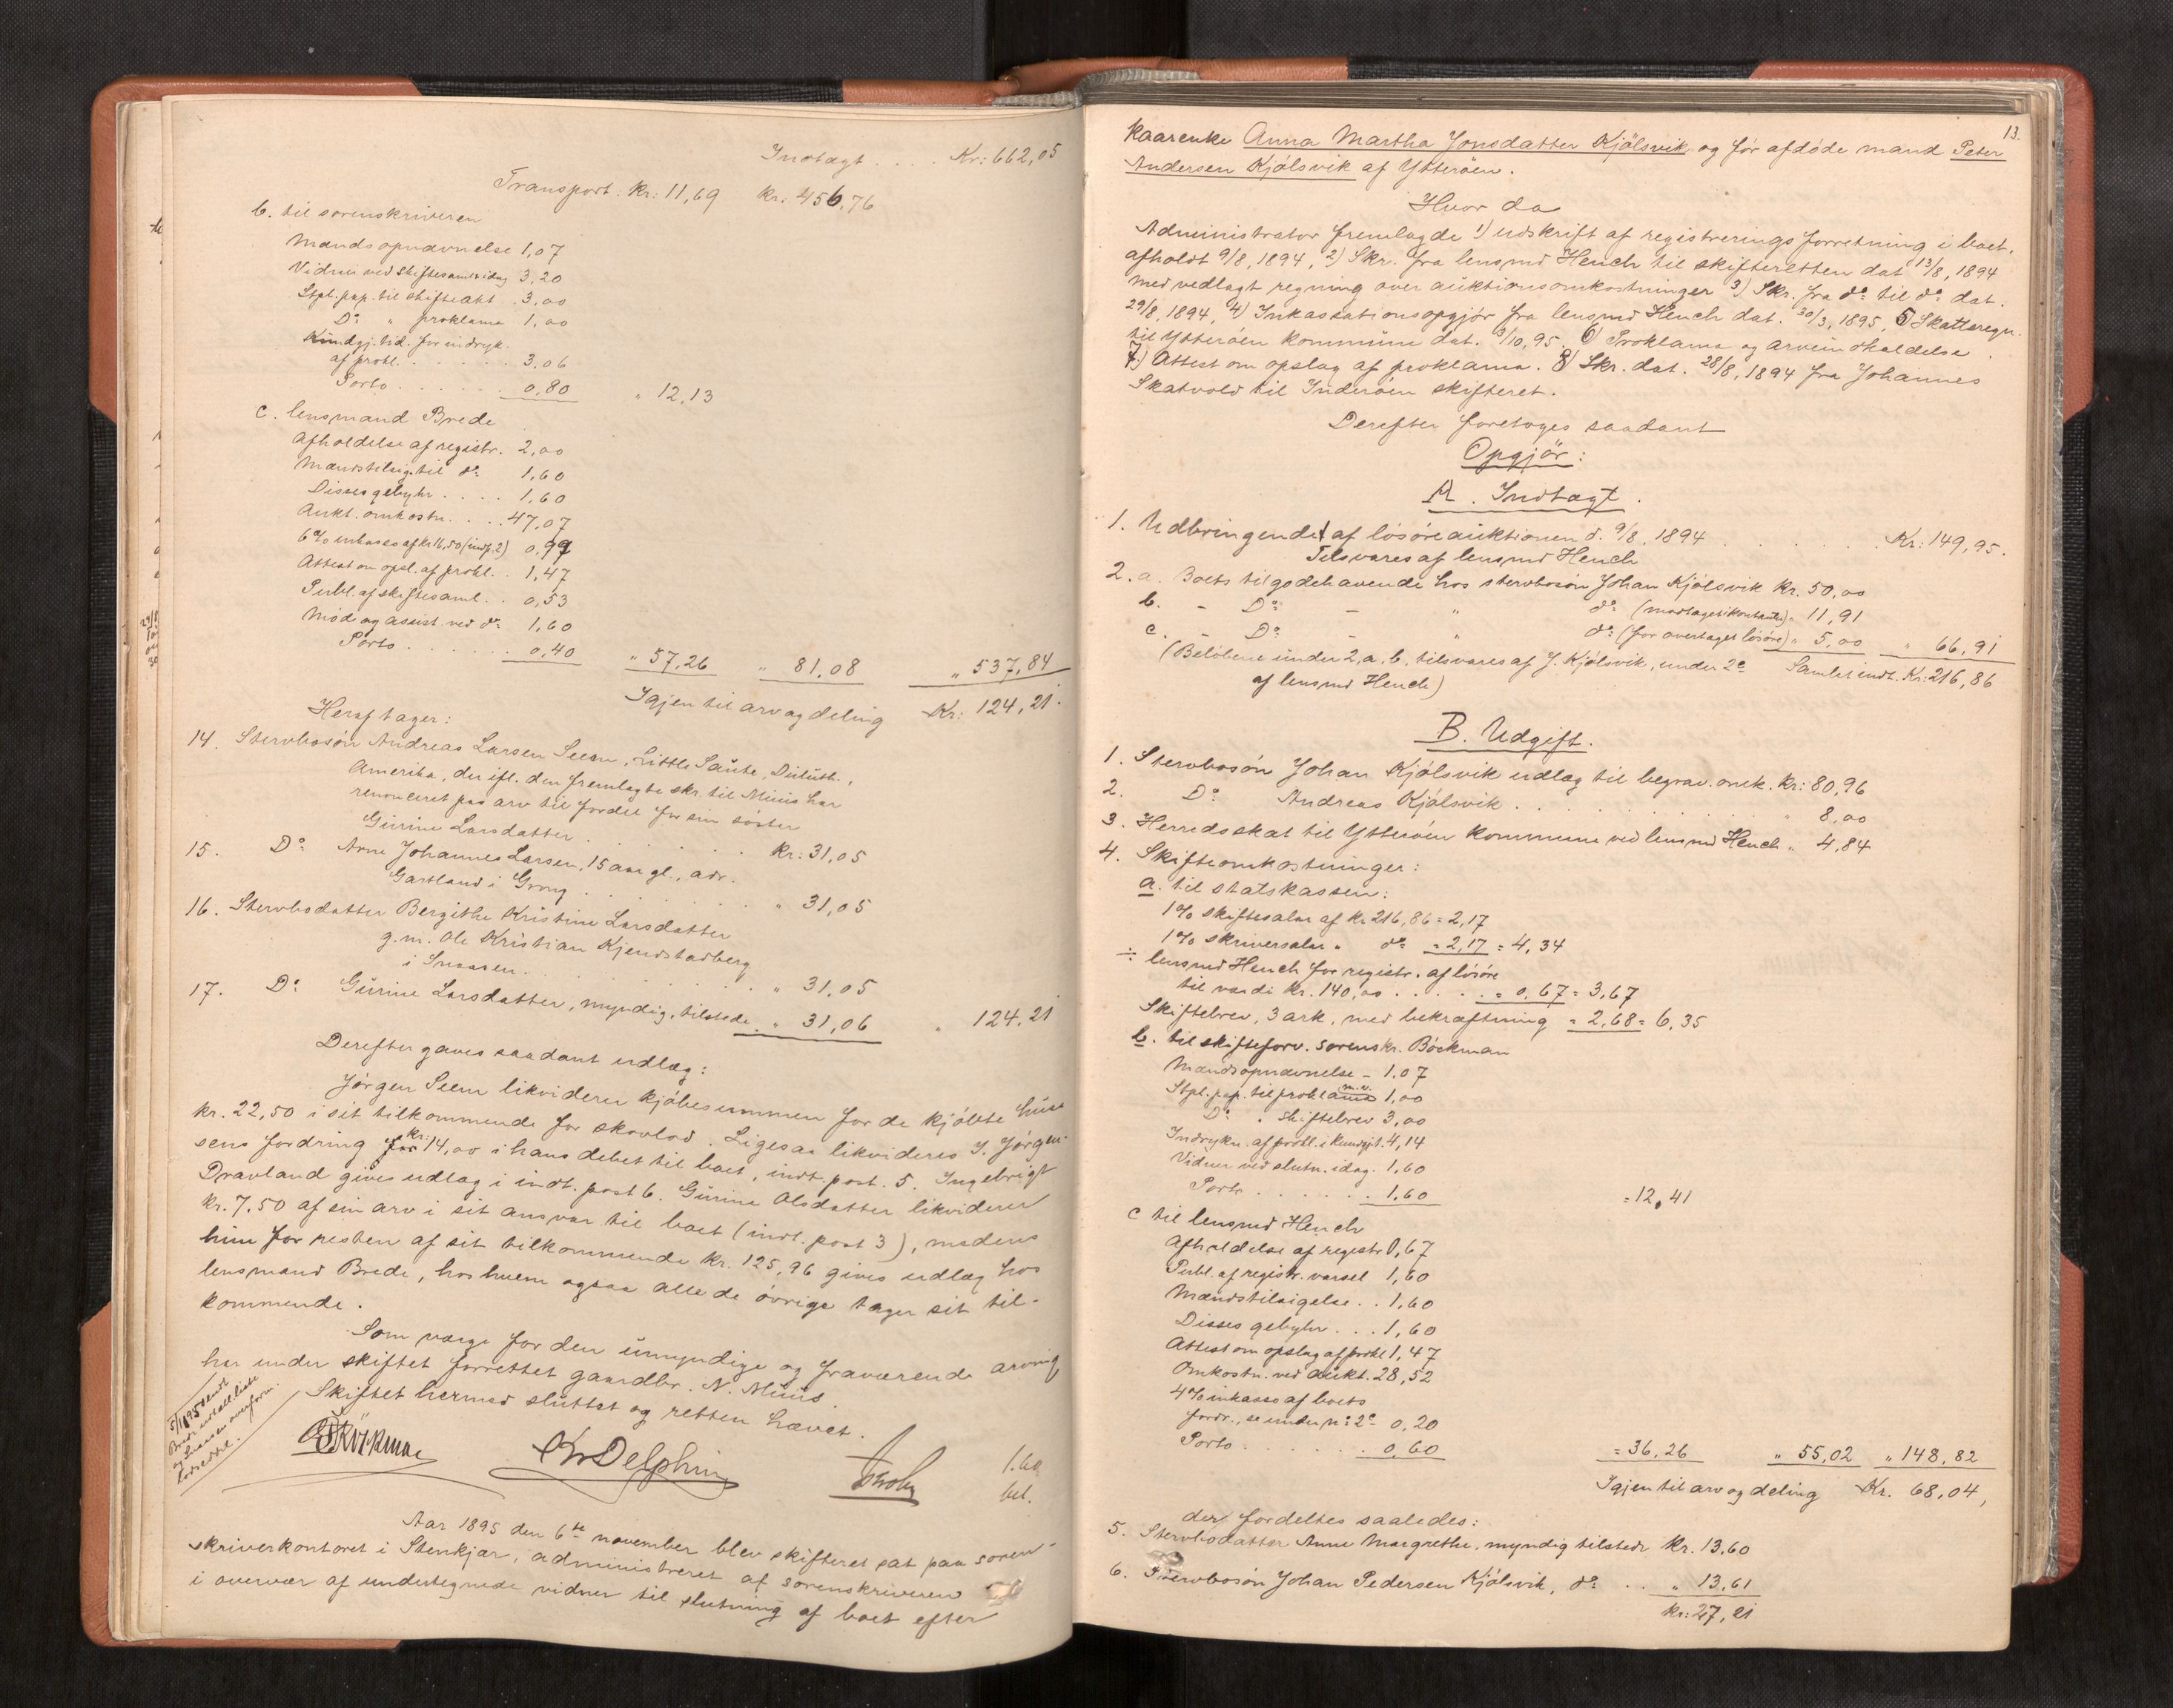 Indtægt . . . . Kr: 662,05
Transport: kr: 11,69 kr: 456,76
b. til sorenskriveren
Mandsopnævnelse 1,07
Vidner ved skiftesaml. idag 3,20
Stpl. pap. til skifteakt . 3,00
Do " proklama 1,00
Kundgj. tid. for indryk.
af prokl. . . . . . . 3,06
Porto . . . . . . 0,80 " 12,13
c. lensmand Brede
Afholdelse af registr. 2,00
Mændstilsig. til do 1,60
Disses gebyhr . . . . 1,60
Aukt. omkostn. . . . 47,07
6% inkasso af kr 16,50 (indt. 2) 0,99
Attest om opsl. af prokl. . 1,47
Publ. af skiftesaml. . . 0,53
Møde og assist. ved do 1,60
Porto . . . . . . . 0,40 " 57,26 " 81,08 " 537,84
Igjen til arv og deling Kr: 124,21.
Heraf tager:
14. Stervbosön Andreas Larsen Seem, Little Saute, Duluth,
Amerika, der ifl. den fremlagte skr. til Muus har
renonceret paa arv til fordel for sin söster
Gurine Larsdatter . . . . . . kr: 31,05
15. Do Arne Johannes Larsen, 15 aar gl., adr.
Gartland i Grong . . . . . . . " 31,05
16. Stervbodatter Bergithe Kristine Larsdatter
g. m. Ole Kristian Kjenstadberg
i Snaasen . . . . . . . . " 31,05
17. Do Gurine Larsdatter, myndig, tilstede " 31,06 " 124,21
Derefter gaves saadant udlæg:
Jörgen Seem likviderer kjöbesummen for de kjöbte huse
kr. 22,50 i sit tilkommende for skovlod. Ligesaa likvideres J. Jörgen-
sens fordring for kr: 14,00 i hans debet til boet, indt. post. 5. Ingebrigt
Dravland gives udlæg i indt. post 6. Gurine Olsdatter likviderer
kr. 7,50 af sin arv i sit ansvar til boet (indt. post 3), medens
hun for resten af sit tilkommende kr. 125,96 gives udlæg hos
lensmand Brede, hos hvem ogsaa alle de övrige tager sit til-
kommende.
Som værge for den umyndige og fraværende arving
har under skiftet forrettet gaardbr. N. Muus.
Skiftet hermed sluttet og retten hævet.
Böckman KrDelphin
1.60
bet.
Aar 1895 den 6te november blev skifteret sat paa soren-
skriverkontoret i Stenkjær, administreret af sorenskriveren
i overvær af undertegnede vidner til slutning af boet efter
13.
kaarenke Anna Martha Jonsdatter Kjölsvik og för afdöde mand Peter
Andersen Kjölsvik af Ytteröen.
Hvor da
Administrator fremlagde 1) udskrift af registreringsforretning i boet,
afholdt 9/8, 1894, 2) Skr. fra lensmd Hench til skifteretten dat. 13/8, 1894
med vedlagt regning over auktionsomkostninger 3) Skr. fra do til do dat.
29/8, 1894, 4) Inkassationsopgjör fra lensmd Hench dat. 30/3, 1895, 5) Skatteregn.
til Ytteröen kommune dat. 3/10, 95. 6) Proklama og arveindkaldelse.
7.) Attest om opslag af proklama. 8) Skr. dat. 28/8, 1894 fra Johannes
Skatvold til Inderöen skifteret.
Derefter foretoges saadant
Opgjör:
A. Indtægt.
1. Udbringendet af lösöreauktionen d. 9/8, 1894 . . . . . . Kr: 149,95.
Tilsvares af lensmd Hench
2. a. Boets tilgodehavende hos stervbosön Johan Kjölsvik kr. 50,00
b. - Do - " do (modtaget kontante) " 11,91
c. - Do - " do (for overtaget lösöre) " 5,00 " 66,91
(Belöbene under 2, a, b, tilsvares af J. Kjölsvik, under 2c Samlet indt. Kr: 216,86
af lensmd Hench)
B. Udgift.
1. Stervbosön Johan Kjölsvik udlæg til begrav. omk. kr: 80,96
2. Do Andreas Kjölsvik . . . . . . . " 8,00
3. Herredsskat til Ytteröen kommune ved lensmd Hench " 4,84
4. Skifteomkostninger:
a. til statskassen:
1% skiftesalær af kr 216,86 = 2,17
1% skriversalær " do = 2,17 = 4,34
÷ lensmd Hench for registr. af lösöre
til værdi kr. 140,00 . . . . . = 0,67 = 3,67
Skiftebrev, 3 ark, med bekræftning = 2,68 = 6,35
b. til skifteforv. sorenskr. Böckman
Mandsopnævnelse - 1.07
Stpl. pap. til proklama m.v. 1,00
Do " skiftebrev 3,00
Indrykn. af prokl. i kundgjt. 4,14
Vidner ved slutn. idag. 1,60
Porto . . . . . . . 1,60 = 12,41
c til lensmd Hench
Afholdelse af registr 0,67
Publ. af registr. varsel 1,60
Mændstilsigelse . . 1,60
Disses gebyhr . . . 1,60
Attest om opslag af prokl 1,47
Omkostn. ved aukt. 28,52
4% inkasso af boets
fordr., se under no 2c 0,20
Porto . . . . . . . 0,60 = 36,26 " 55,02 " 148,82
Igjen til arv og deling Kr. 68,04,
der fordeltes saaledes:
5. Stervbodatter Anne Margrethe, myndig tilstede kr. 13,60
6. Stervbosön Johan Pedersen Kjölsvik, do . . " 13,61
kr: 27,21